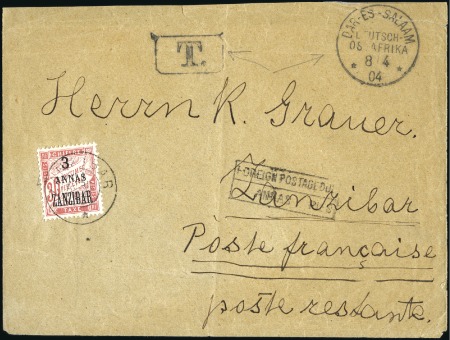 T.
DAR-ES-SALAAM
DEUTSCH-
OSTAFRIKA
8 4
04
Herrn K. Grauer.
3
ANNAS
ZANZIBAR
TAXE
FOREIGN POSTAGE DUE
ANNAS
Zanzibar
Poste française
poste restante.